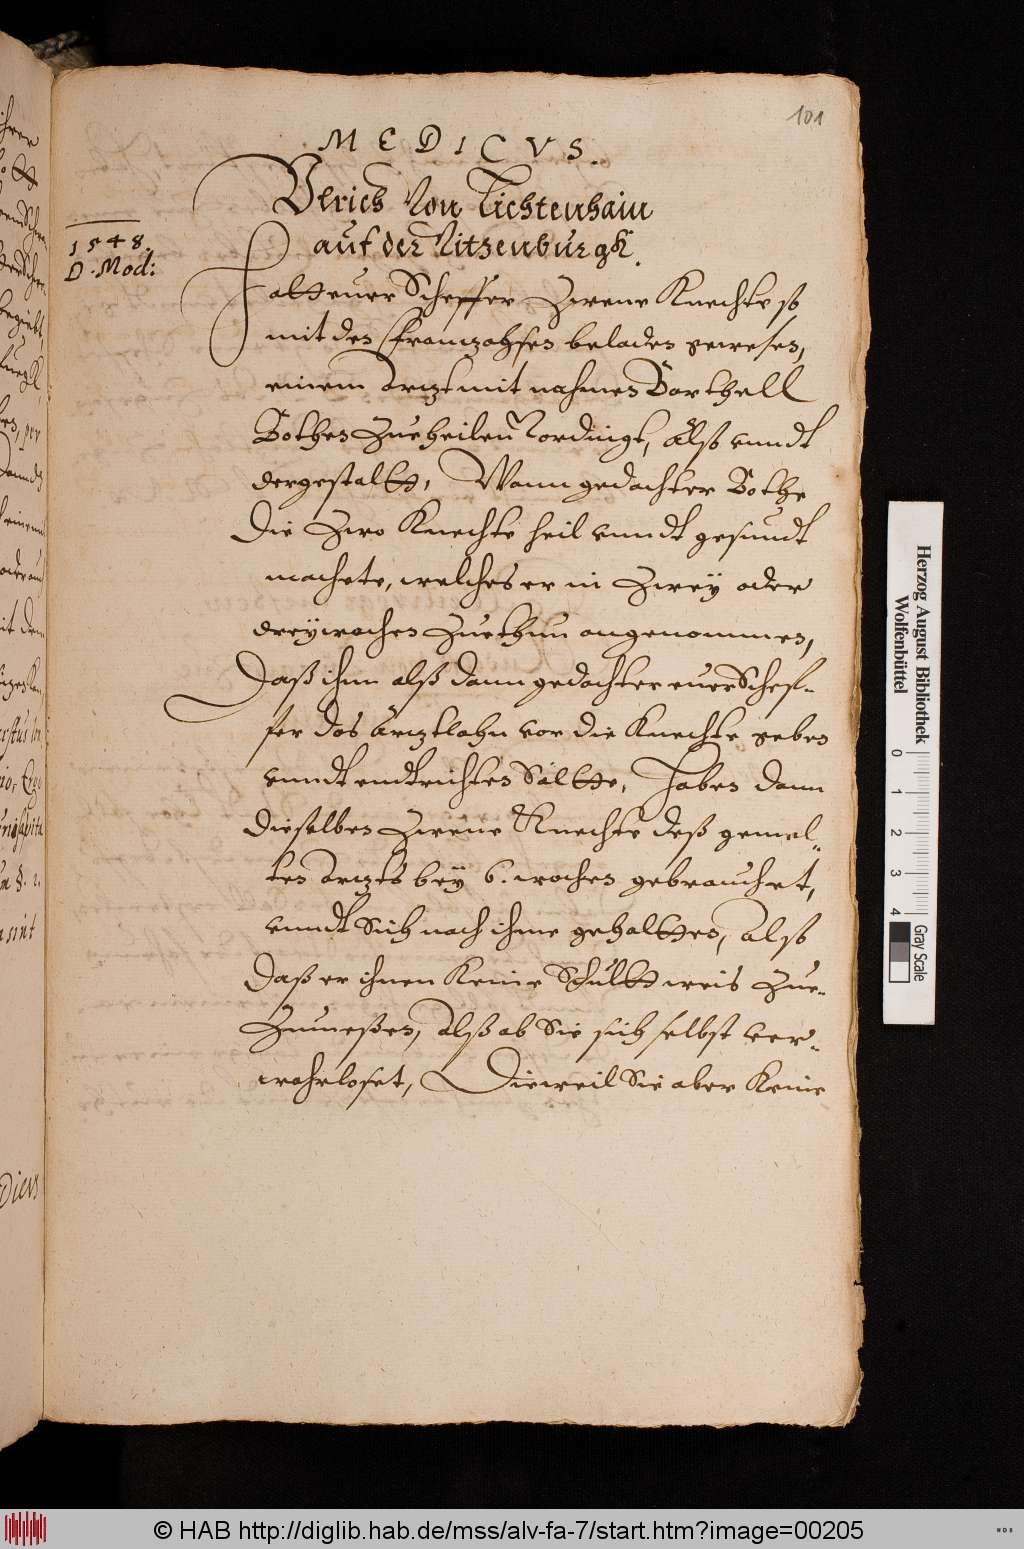 101
MEDICVS.
Vlrich Von Lichtenhain
auf der Vitzenburgk.
1548.
D. Mod:
Hatt euer Scheffer Zwene Knechte so
mit den Frantzohsen beladen gewesen,
einem Artzt mit nahmen Barthell
Bothen Zue heilen Vordingt, Alß vnndt
dergestaltt, Wann gedachter Bothe
Die Zwo Knechte heil vnndt gesundt
machete, welches er in Zweÿ oder
dreÿ wochen Zuethun angenommen,
Daß ihm alß dann gedachter euer Schef-
fer das Artzlohn vor die Knechte geben
vnndt endtrichten Soltte, Haben dann
dieselben Zwene Knechte deß gemel-
ten Artzts beÿ 6. wochen gebrauchet,
vnndt Sich nach ihme gehaltten, Alß
Daß er ihnen Keine Schultt weis Zue-
Zumeßen, Alß ob Sie sich selbst ver-
wahrloset, Dieweil Sie aber Keine
Herzog August Bibliothek
Wolfenbüttel
0 1 2 3 4
Gray Scale
© HAB http://diglib.hab.de/mss/alv-fa-7/start.htm?image=00205